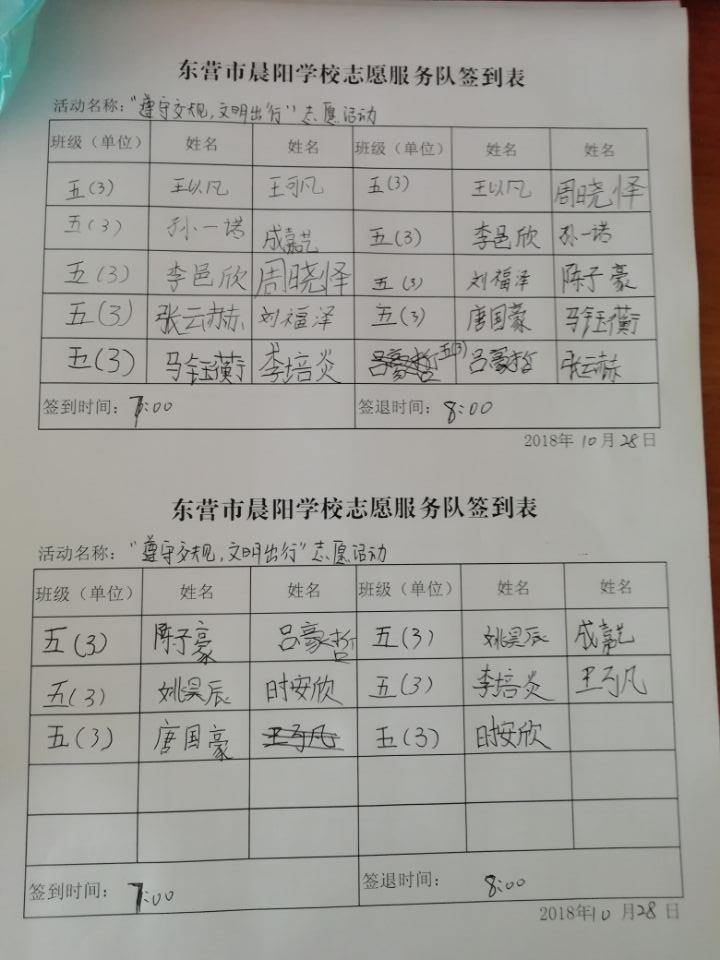 东营市晨阳学校志愿服务队签到表
活动名称：“遵守交规，文明出行”志愿活动
班级（单位） 姓名 姓名 班级（单位） 姓名 姓名
五(3) 王以凡 王可凡 五(3) 王以凡 周晓怿
五(3) 孙一诺 成嘉艺 五(3) 李邑欣 孙一诺
五(3) 李邑欣 周晓怿 五(3) 刘福泽 陈子豪
五(3) 张云赫 刘福泽 五(3) 唐国豪 马钰蘅
五(3) 马钰蘅 李培炎 吕豪哲 五(3) 吕豪哲 张云赫
签到时间：7:00 签退时间：8:00
2018年10月28日
东营市晨阳学校志愿服务队签到表
活动名称：“遵守交规，文明出行”志愿活动
班级（单位） 姓名 姓名 班级（单位） 姓名 姓名
五(3) 陈子豪 吕豪哲 五(3) 姚昊辰 成嘉艺
五(3) 姚昊辰 时安欣 五(3) 李培炎 王可凡
五(3) 唐国豪 王可凡 五(3) 时安欣
签到时间：7:00 签退时间：8:00
2018年10月28日